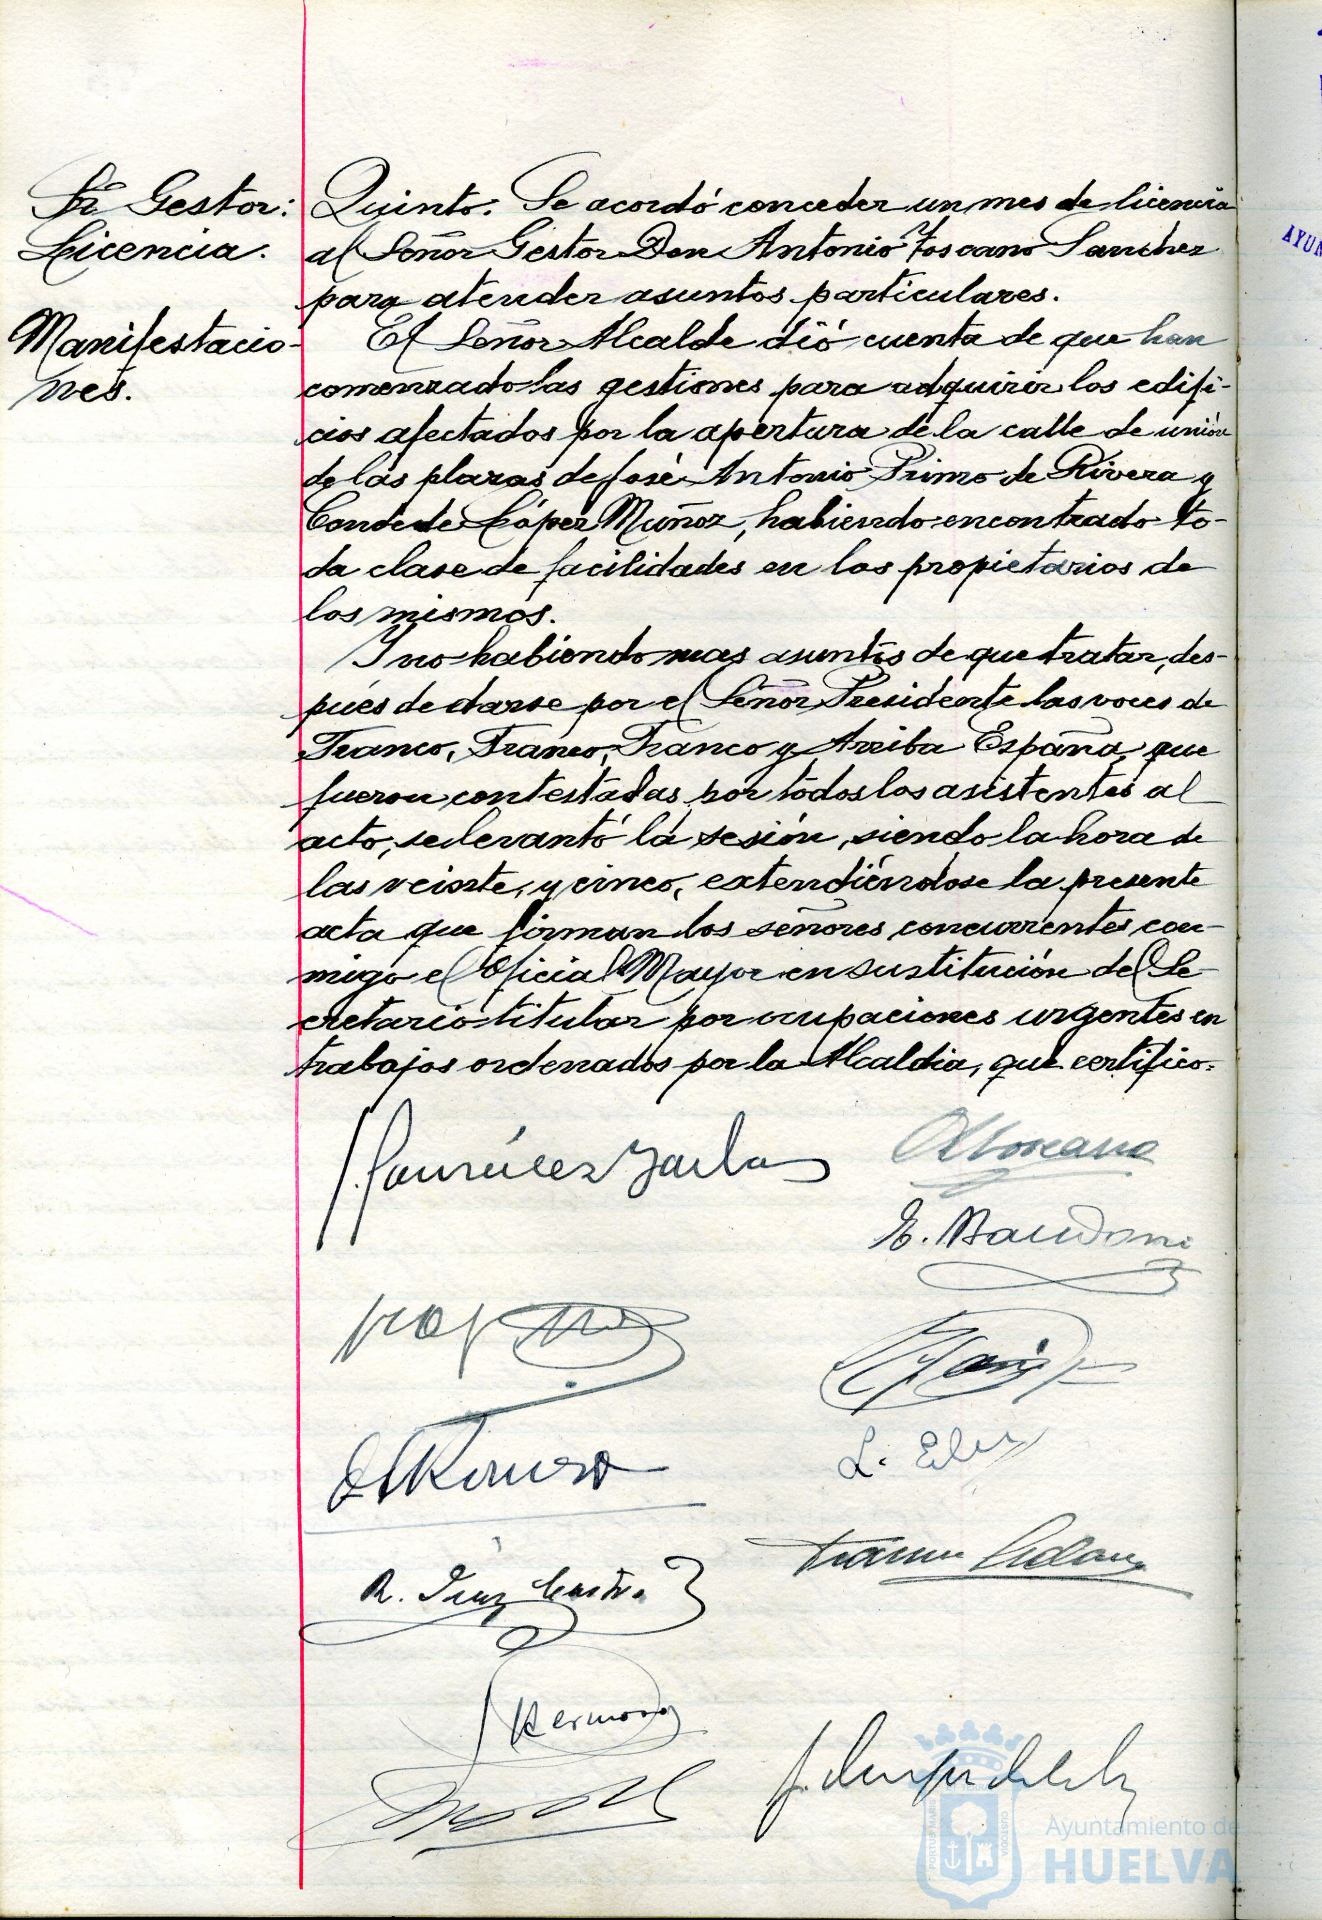 Sr Gestor:
Licencia.
Quinto. Se acordó conceder un mes de licencia
al Señor Gestor Don Antonio Toscano Sanchez
para atender asuntos particulares.
Manifestacio-
nes.
El Señor Alcalde dió cuenta de que han
comenzado las gestiones para adquirir los edifi-
cios afectados por la apertura de la calle de unión
de las plazas de José Antonio Primo de Rivera y
Conde de López Muñoz, habiendo encontrado to-
da clase de facilidades en los propietarios de
los mismos.
Y no habiendo mas asuntos de que tratar, des-
pués de darse por el Señor Presidente las voces de
Franco, Franco, Franco y Arriba España, que
fueron contestadas por todos los asistentes al
acto, se levantó la sesión, siendo la hora de
las veinte y cinco, extendiéndose la presente
acta que firman los señores concurrentes con-
migo el Oficial Mayor en sustitución del Se-
cretario titular por ocupaciones urgentes en
trabajos ordenados por la Alcaldia, que certifico.
AToscano
L.
R. Diaz
Ayuntamiento de
HUELVA
AYUN